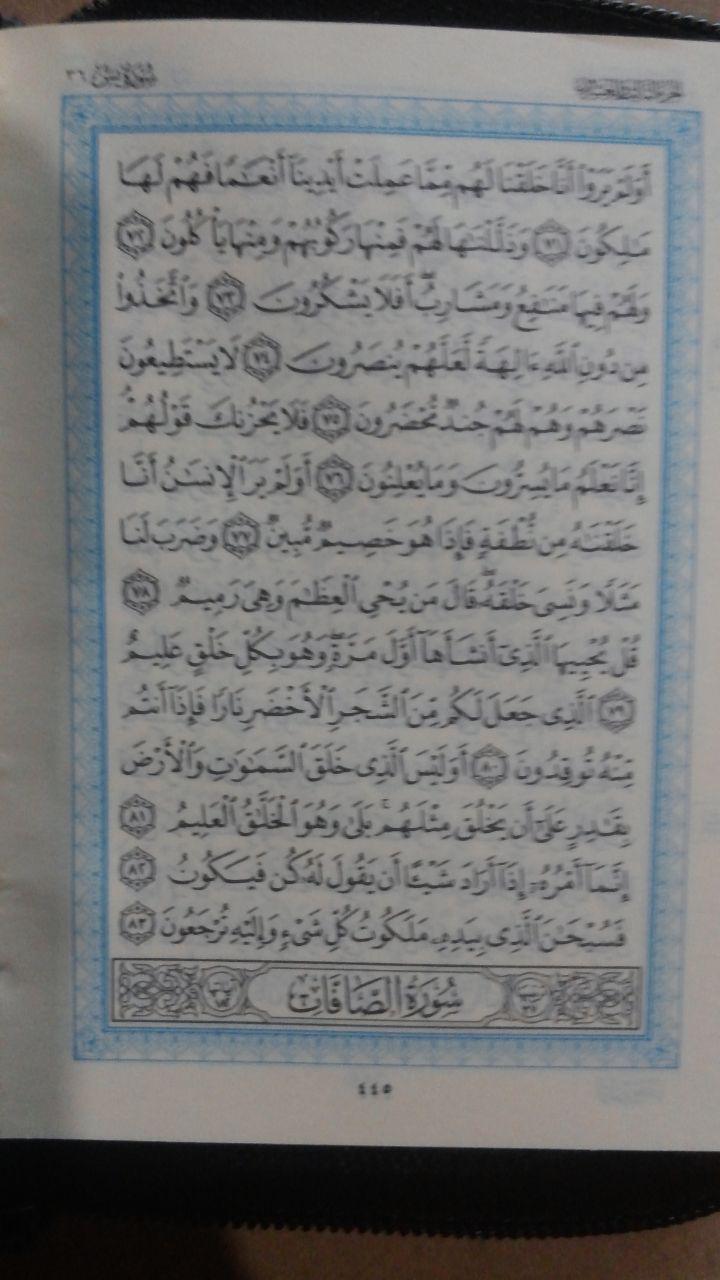 سُورَةُ يسٓ ٣٦
الجزء الثالث والعشرون
أَوَلَمْ يَرَوْا۟ أَنَّا خَلَقْنَا لَهُم مِّمَّا عَمِلَتْ أَيْدِينَآ أَنْعَـٰمًا فَهُمْ لَهَا
مَـٰلِكُونَ ٧١ وَذَلَّلْنَـٰهَا لَهُمْ فَمِنْهَا رَكُوبُهُمْ وَمِنْهَا يَأْكُلُونَ ٧٢
وَلَهُمْ فِيهَا مَنَـٰفِعُ وَمَشَارِبُ ۖ أَفَلَا يَشْكُرُونَ ٧٣ وَٱتَّخَذُوا۟
مِن دُونِ ٱللَّهِ ءَالِهَةً لَّعَلَّهُمْ يُنصَرُونَ ٧٤ لَا يَسْتَطِيعُونَ
نَصْرَهُمْ وَهُمْ لَهُمْ جُندٌ مُّحْضَرُونَ ٧٥ فَلَا يَحْزُنكَ قَوْلُهُمْ ۘ
إِنَّا نَعْلَمُ مَا يُسِرُّونَ وَمَا يُعْلِنُونَ ٧٦ أَوَلَمْ يَرَ ٱلْإِنسَـٰنُ أَنَّا
خَلَقْنَـٰهُ مِن نُّطْفَةٍ فَإِذَا هُوَ خَصِيمٌ مُّبِينٌ ٧٧ وَضَرَبَ لَنَا
مَثَلًا وَنَسِىَ خَلْقَهُۥ ۖ قَالَ مَن يُحْىِ ٱلْعِظَـٰمَ وَهِىَ رَمِيمٌ ٧٨
قُلْ يُحْيِيهَا ٱلَّذِىٓ أَنشَأَهَآ أَوَّلَ مَرَّةٍ ۖ وَهُوَ بِكُلِّ خَلْقٍ عَلِيمٌ
٧٩ ٱلَّذِى جَعَلَ لَكُم مِّنَ ٱلشَّجَرِ ٱلْأَخْضَرِ نَارًا فَإِذَآ أَنتُم
مِّنْهُ تُوقِدُونَ ٨٠ أَوَلَيْسَ ٱلَّذِى خَلَقَ ٱلسَّمَـٰوَٰتِ وَٱلْأَرْضَ
بِقَـٰدِرٍ عَلَىٰٓ أَن يَخْلُقَ مِثْلَهُم ۚ بَلَىٰ وَهُوَ ٱلْخَلَّـٰقُ ٱلْعَلِيمُ ٨١
إِنَّمَآ أَمْرُهُۥٓ إِذَآ أَرَادَ شَيْـًٔا أَن يَقُولَ لَهُۥ كُن فَيَكُونُ ٨٢
فَسُبْحَـٰنَ ٱلَّذِى بِيَدِهِۦ مَلَكُوتُ كُلِّ شَىْءٍ وَإِلَيْهِ تُرْجَعُونَ ٨٣
سُورَةُ الصَّافَّاتِ
٤٤٥